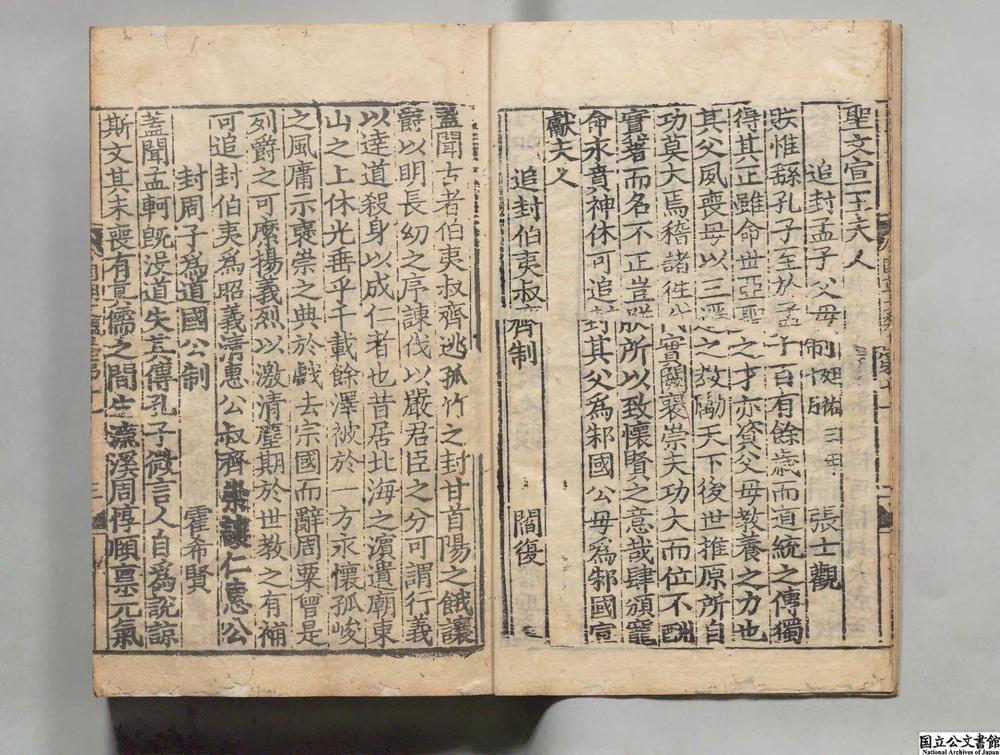 聖文宣王夫人
追封孟子父母制 延祐三年十月 張士觀
朕惟繇孔子至於孟子百有餘歲而道統之傳獨
得其正雖命世亞聖之才亦資父母教養之力也
其父夙喪母以三遷之敎勵天下後世推原所自
功莫大焉稽諸徃代實闕襃崇夫功大而位不酬
實著而名不正豈朕所以致懷賢之意哉肆頒寵
命永賁神休可追封其父爲邾國公母爲邾國宣
獻夫人
追封伯夷叔齊制 閻復
蓋聞古者伯夷叔齊逃孤竹之封甘首陽之餓讓
爵以明長幼之序諫伐以嚴君臣之分可謂行義
以達道殺身以成仁者也昔居北海之濵遺廟東
山之上休光垂乎千載餘澤被於一方永懷孤峻
之風庸示襃崇之典於戲去宗國而辭周粟曾是
列爵之可縻揚義烈以激清塵期於世教之有補
可追封伯夷爲昭義清惠公叔齊崇讓仁惠公
封周子爲道國公制 霍希賢
蓋聞孟軻旣没道失其傳孔子微言人自爲説諒
斯文其未喪有眞儒之間生濂溪周惇頤禀元氣
国立公文書館
National Archives of Japan